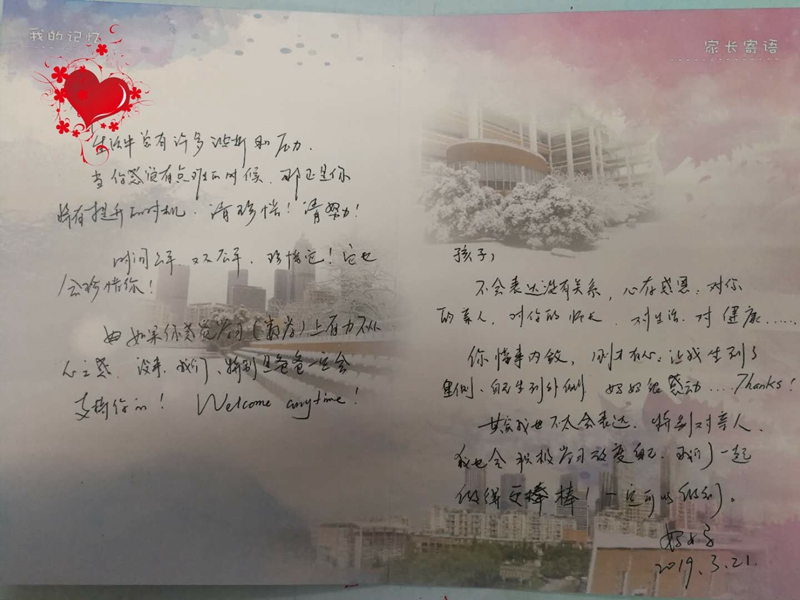 我的记忆
生活中总有许多波折和压力.
当你感觉有点难的时候.那正是你
将有提升的时机.请珍惜!请努力!
时间公平又不公平.珍惜它!它也
会珍惜你!
如果你感觉学习(数学)上有力不从
心之感.没事.我们、特别是爸爸一定会
支持你的! Welcome anytime!
家长寄语
孩子,
不会表达没有关系,心存感恩:对你
的亲人,对你的师长.对生活.对健康......
你懂事内敛,刚才有心:让我坐到了
里侧、自己坐到外侧 妈妈很感动....Thanks!
其实我也不太会表达.特别对亲人.
我也会积极学习改变自己.我们一起
做得更棒棒!一定可以做到。
2019.3.21.